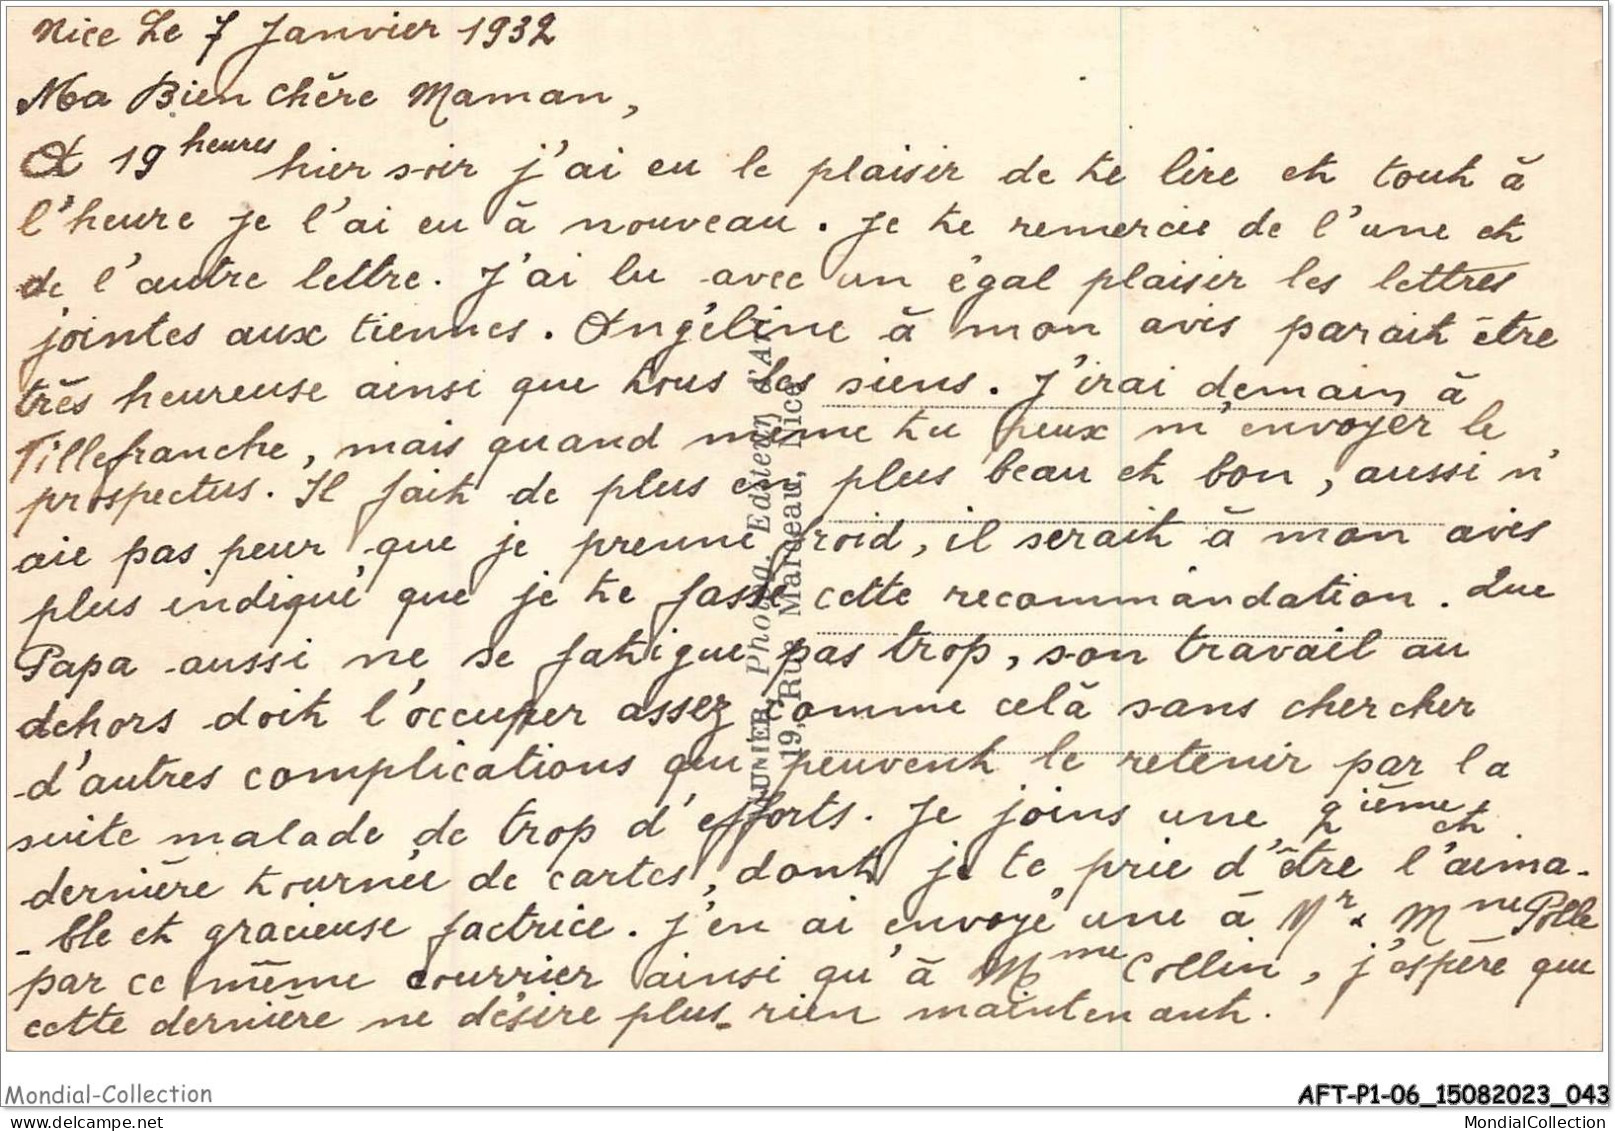 Nice Le 7 Janvier 1932
Ma Bien chère Maman,
A 19 heures hier soir j'ai eu le plaisir de te lire et tout à
l'heure je l'ai eu à nouveau. Je te remercie de l'une et
de l'autre lettre. J'ai lu avec un égal plaisir les lettres
jointes aux tiennes. Angéline à mon avis parait être
très heureuse ainsi que tous les siens. J'irai demain à
Villefranche, mais quand même tu peux m'envoyer le
prospectus. Il fait de plus en plus beau et bon, aussi n'
aie pas peur que je prenne froid, il serait à mon avis
plus indiqué que je te fasse cette recommandation. Que
Papa aussi ne se fatigue pas trop, son travail au
dehors doit l'occuper assez comme celà sans chercher
d'autres complications qui peuvent le retenir par la
suite malade de trop d'efforts. Je joins une 2ième et
dernière tournée de cartes, dont je te prie d'être l'aima-
-ble et gracieuse factrice. J'en ai envoyé une à Mr & Mme Polle
par ce même courrier ainsi qu'à Mme Collin, j'espère que
cette dernière ne désire plus rien maintenant.
MUNIER, Photog. Editeur d'Art
19, Rue Marceau, Nice
Mondial-Collection
AFT-P1-06_15082023_043
https://www.delcampe.net/fr/collections/store/mondial-collection
MondialCollection